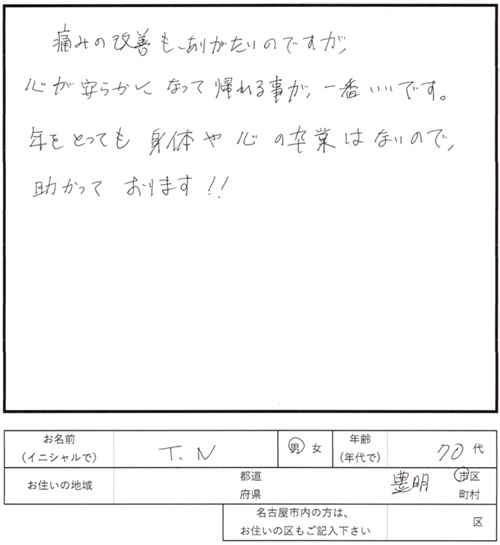 痛みの改善も、ありがたいのですが、
心が安らかくなって帰れる事が、一番いいです。
年をとっても身体や心の卒業はないので、
助かっております!!
お名前
(イニシャルで)
T.N
男 女
年齢
(年代で)
70代
お住いの地域
都道
府県
豊明
市区
町村
名古屋市内の方は、
お住いの区もご記入下さい
区